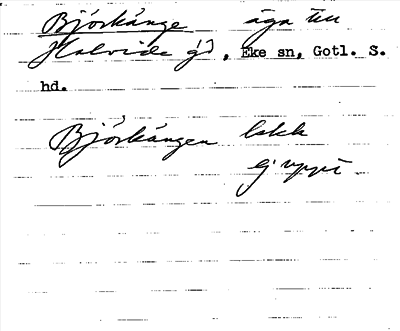 Björkänge äga till
Halvide gd, Eke sn, Gotl. S.
hd.
Björkängen lokk
ej uppt